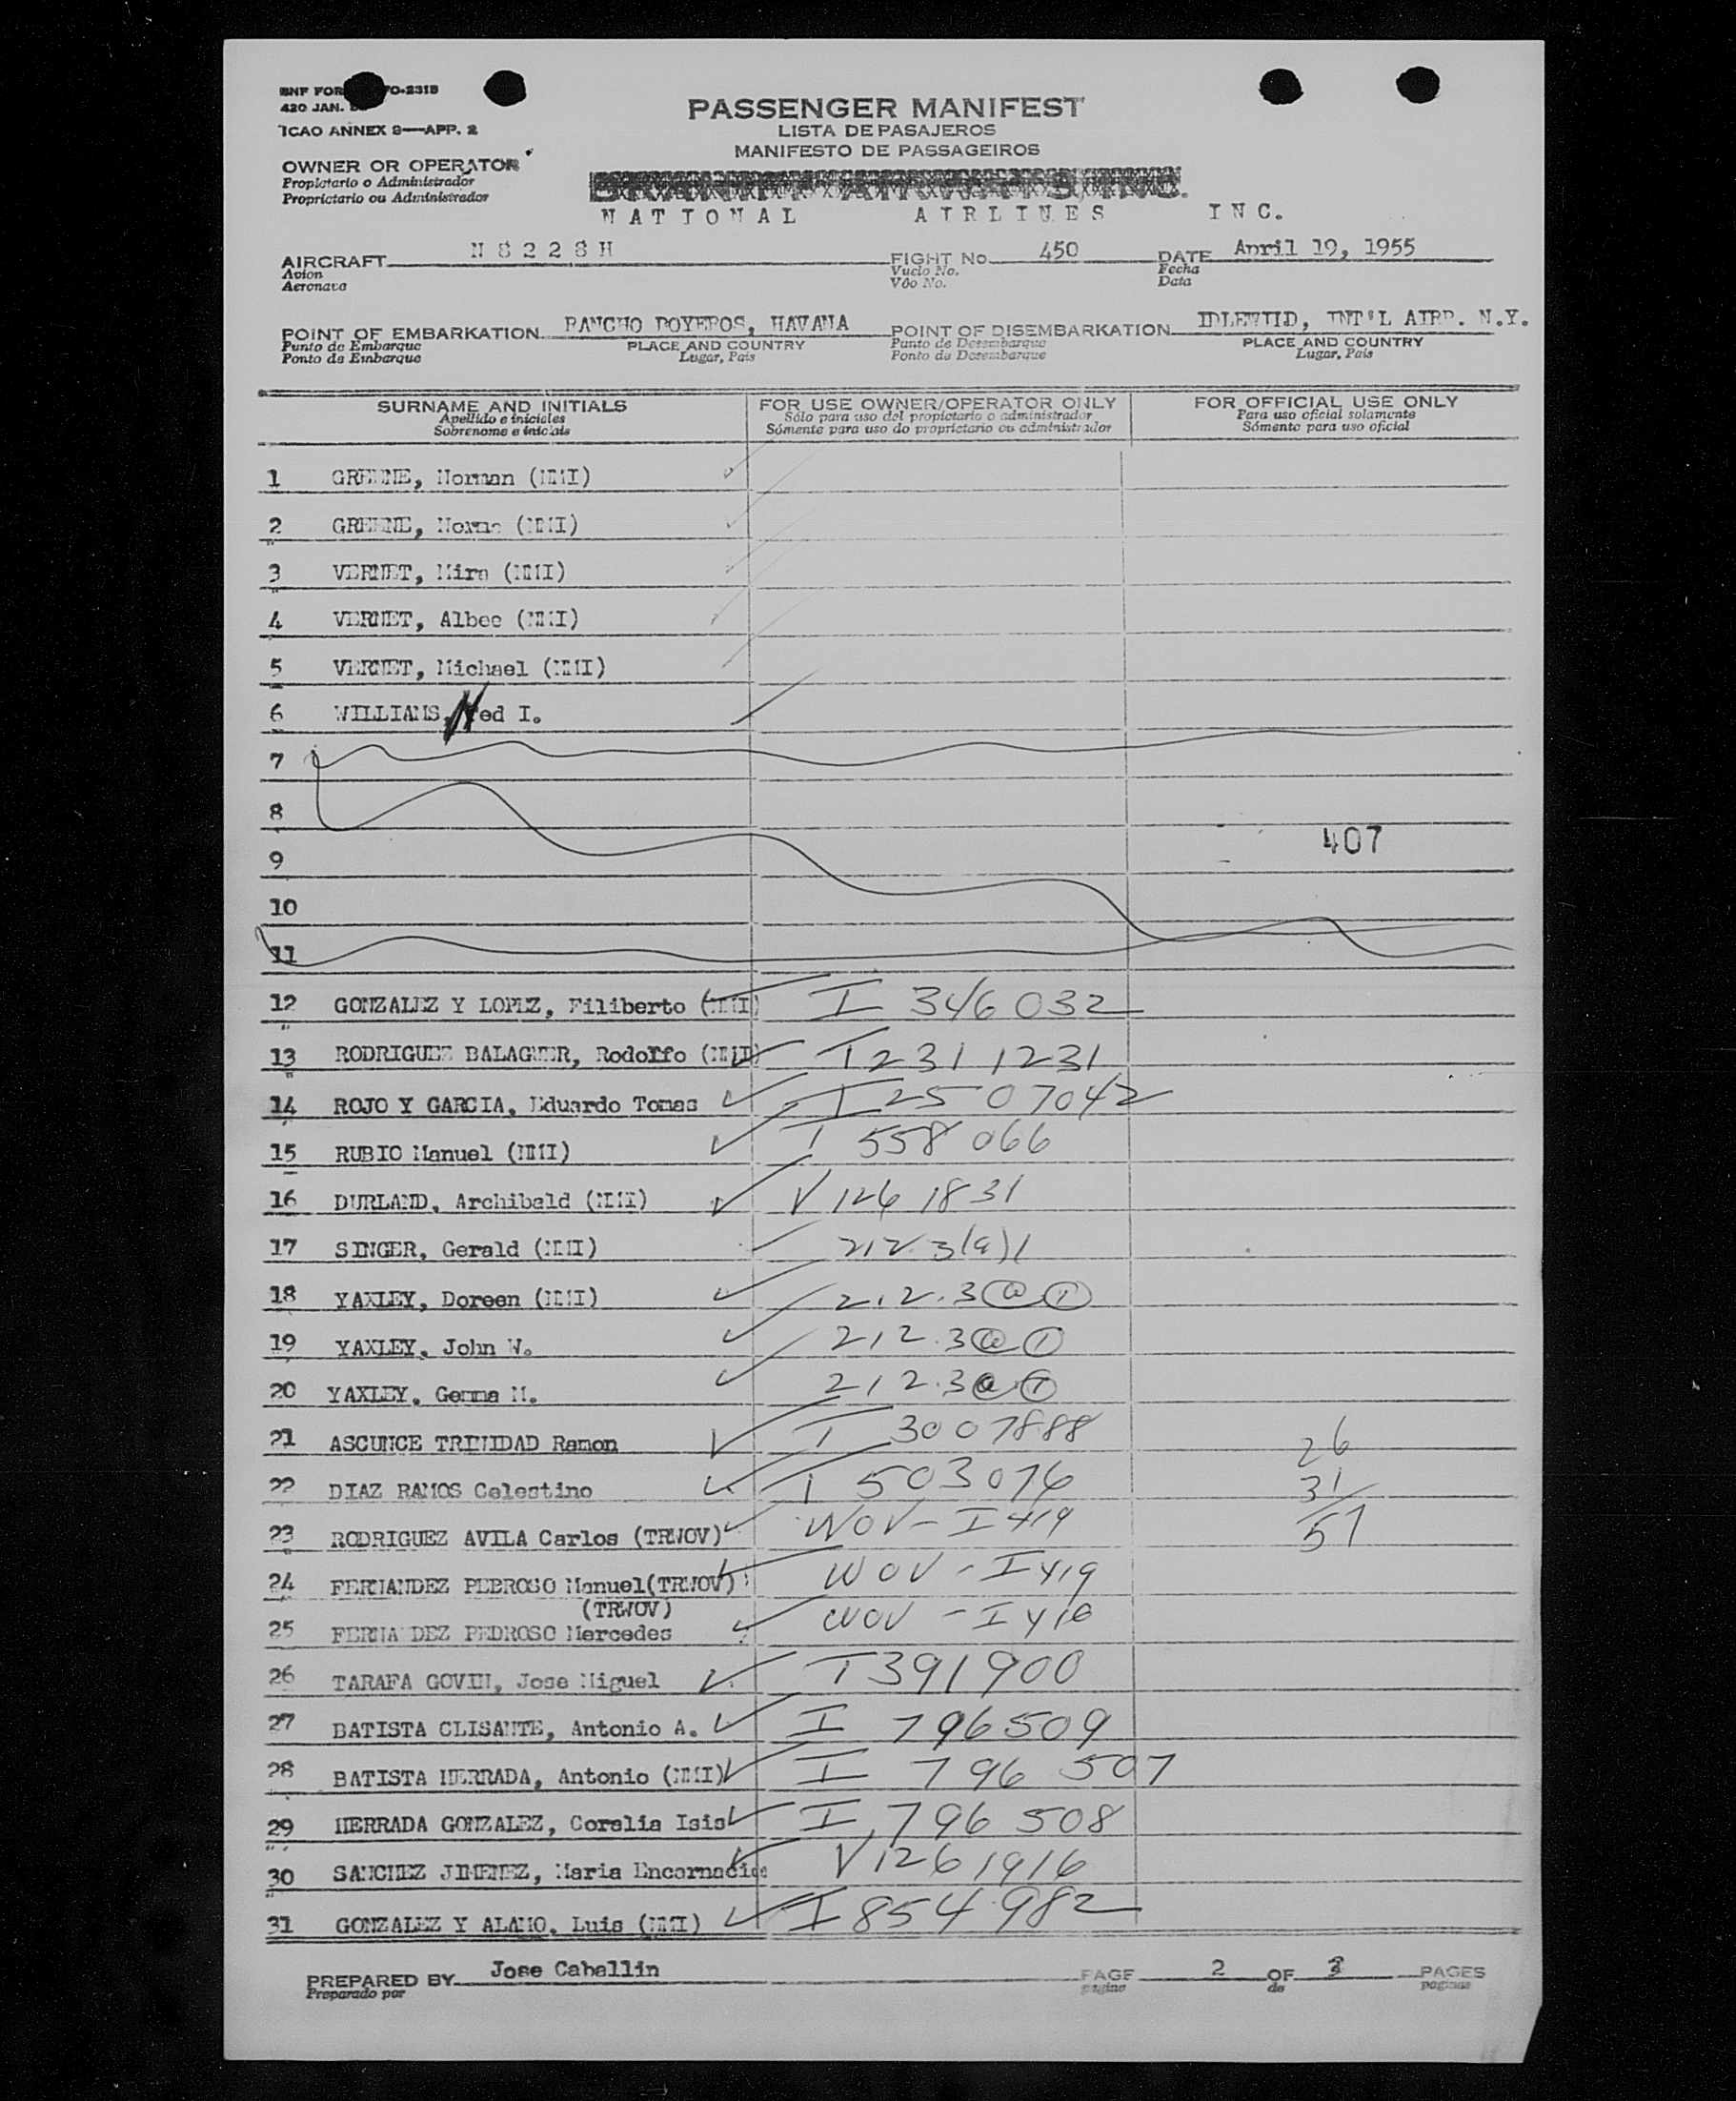 420 JAN.
ICAO ANNEX 9—APP. 2
PASSENGER MANIFEST
LISTA DE PASAJEROS
MANIFESTO DE PASSAGEIROS
OWNER OR OPERATOR
Propietario o Administrador
Proprietario ou Administrador
NATIONAL AIRLINES INC.
AIRCRAFT N 8 2 2 8 H FIGHT No. 450 DATE April 19, 1955
Avion Vuelo No. Fecha
Aeronave Vôo No. Data
POINT OF EMBARKATION RANCHO BOYEROS, HAVANA POINT OF DISEMBARKATION IDLEWILD, INT'L AIRP. N.Y.
Punto de Embarque PLACE AND COUNTRY Punto de Desembarque PLACE AND COUNTRY
Ponto da Embarque Lugar, Pais Ponto du Desembarque Lugar, Pais
SURNAME AND INITIALS FOR USE OWNER/OPERATOR ONLY FOR OFFICIAL USE ONLY
Apellido e iniciales Sólo para uso del propietario o administrador Para uso oficial solamente
Sobrenome e iniciais Sómente para uso do proprietario ou administrador Sómente para uso oficial
1 GREENE, Norman (NMI)
2 GREENE, Norma (NMI)
3 VERNET, Mira (NMI)
4 VERNET, Albec (NMI)
5 VERNET, Michael (NMI)
6 WILLIAMS, Ned I.
7
8
407
9
10
11
12 GONZALEZ Y LOPEZ, Filiberto (NMI) I 346 032
13 RODRIGUEZ BALAGUER, Rodolfo (NMI) I 2311231
14 ROJO Y GARCIA, Eduardo Tomas I 2507042
15 RUBIO Manuel (NMI) I 558 066
16 DURLAND, Archibald (NMI) V 1261831
17 SINGER, Gerald (NMI) 212.3(a)1
18 YAXLEY, Doreen (NMI) 212.3(a)(1)
19 YAXLEY, John W. 212.3(a)(1)
20 YAXLEY, Gemma M. 212.3(a)(1)
21 ASCUNCE TRINIDAD Ramon I 3007888 26
22 DIAZ RAMOS Celestino I 503076 31
23 RODRIGUEZ AVILA Carlos (TRWOV) WOV - I 419 57
24 FERNANDEZ PEDROSO Manuel(TRWOV) WOV - I 419
(TRWOV)
25 FERNANDEZ PEDROSO Mercedes WOV - I 418
26 TARAFA GOVIN, Jose Miguel I 391900
27 BATISTA CLISANTE, Antonio A. I 796509
28 BATISTA HERRADA, Antonio (NMI) I 796 507
29 HERRADA GONZALEZ, Coralia Isis I 796 508
30 SANCHEZ JIMENEZ, Maria Encarnacion V 1261916
31 GONZALEZ Y ALAMO, Luis (NMI) I 854982
PREPARED BY Jose Caballin PAGE 2 OF 3 PAGES
Preparado por pagina de paginas